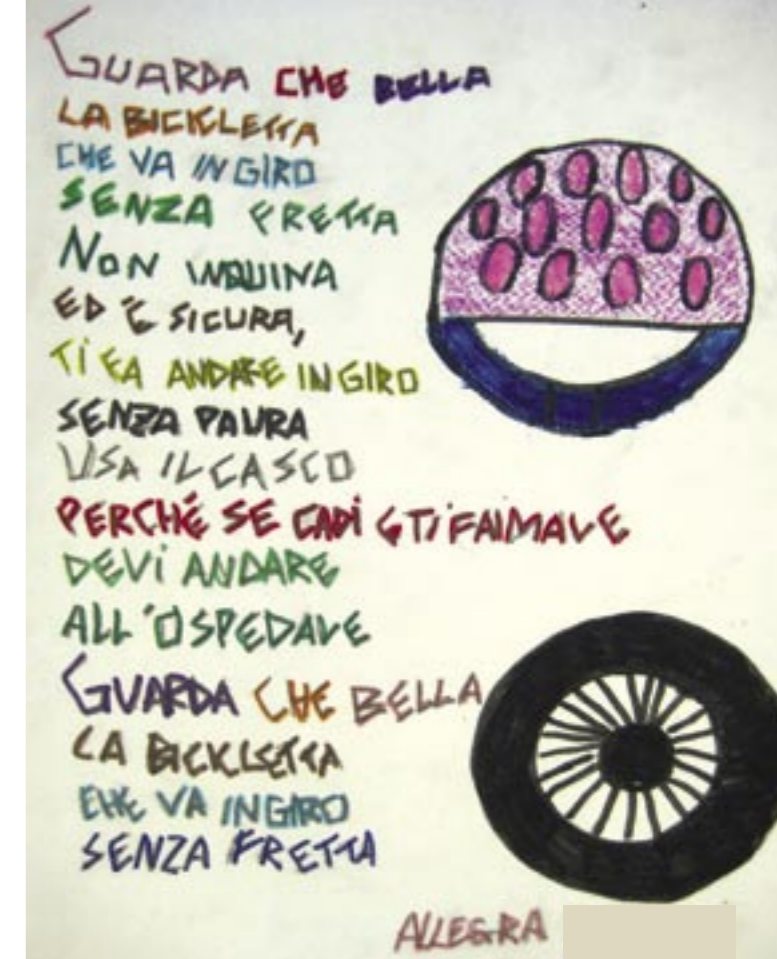 GUARDA CHE BELLA
LA BICICLETTA
CHE VA IN GIRO
SENZA FRETTA
NON INQUINA
ED È SICURA,
TI FA ANDARE IN GIRO
SENZA PAURA
USA IL CASCO
PERCHÉ SE CADI E TI FAI MALE
DEVI ANDARE
ALL'OSPEDALE
GUARDA CHE BELLA
LA BICICLETTA
CHE VA IN GIRO
SENZA FRETTA
ALLEGRA